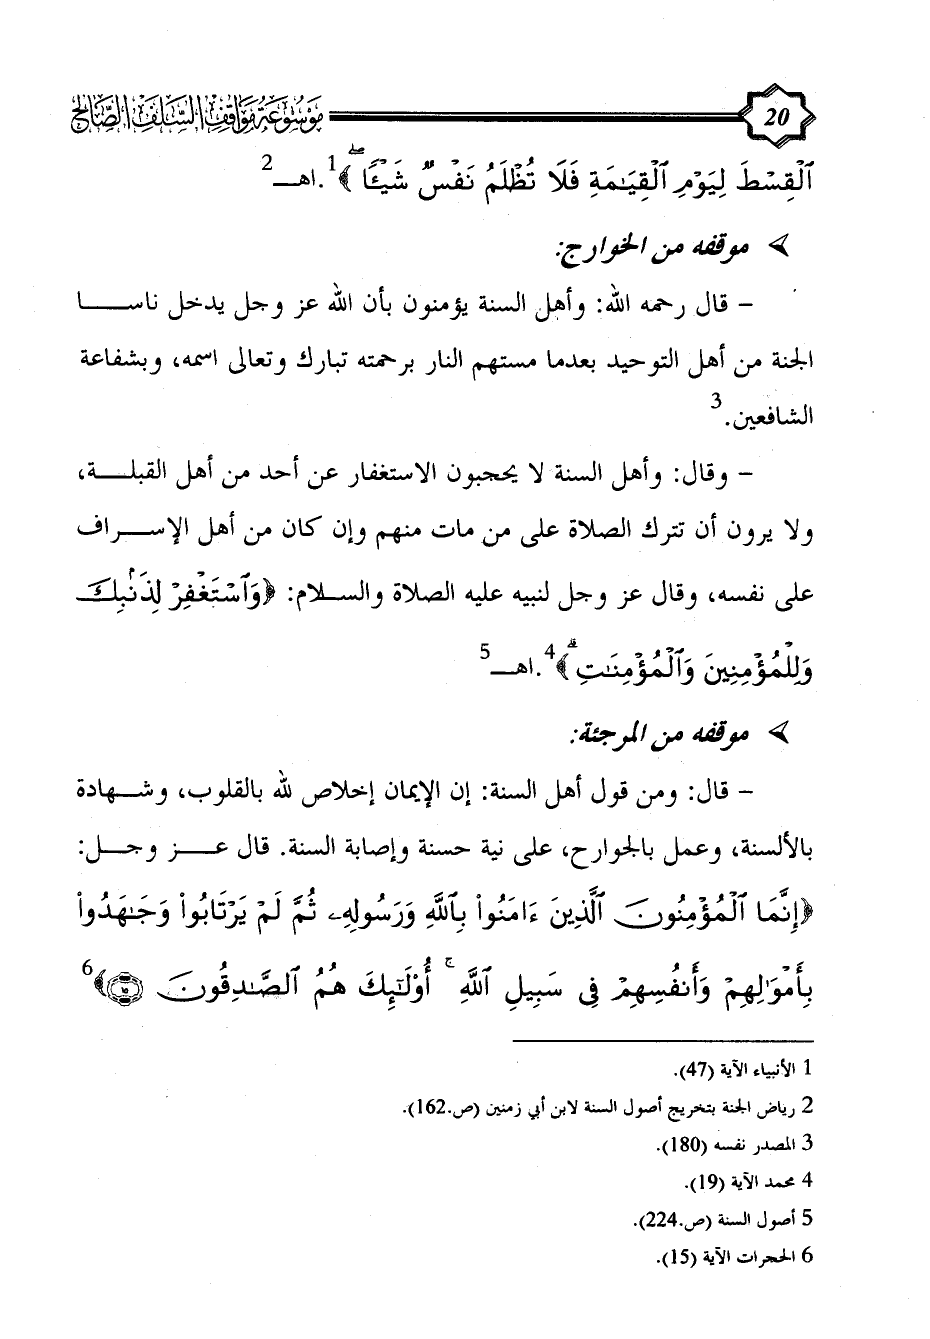 موسوعة مواقف السلف الصالح 20
ٱلْقِسْطَ لِيَوْمِ ٱلْقِيَـٰمَةِ فَلَا تُظْلَمُ نَفْسٌ شَيْـًٔا ۖ﴾1.اهـ2
موقفه من الخوارج:
- قال رحمه الله: وأهل السنة يؤمنون بأن الله عز وجل يدخل ناسا
الجنة من أهل التوحيد بعدما مستهم النار برحمته تبارك وتعالى اسمه، وبشفاعة
الشافعين.3
- وقال: وأهل السنة لا يحجبون الاستغفار عن أحد من أهل القبلة،
ولا يرون أن تترك الصلاة على من مات منهم وإن كان من أهل الإسراف
على نفسه، وقال عز وجل لنبيه عليه الصلاة والسلام: ﴿وَٱسْتَغْفِرْ لِذَنۢبِكَ
وَلِلْمُؤْمِنِينَ وَٱلْمُؤْمِنَـٰتِ ۗ﴾4.اهـ5
موقفه من المرجئة:
- قال: ومن قول أهل السنة: إن الإيمان إخلاص لله بالقلوب، وشهادة
بالألسنة، وعمل بالجوارح، على نية حسنة وإصابة السنة. قال عز وجل:
﴿إِنَّمَا ٱلْمُؤْمِنُونَ ٱلَّذِينَ ءَامَنُوا۟ بِٱللَّهِ وَرَسُولِهِۦ ثُمَّ لَمْ يَرْتَابُوا۟ وَجَـٰهَدُوا۟
بِأَمْوَٰلِهِمْ وَأَنفُسِهِمْ فِى سَبِيلِ ٱللَّهِ ۚ أُو۟لَـٰٓئِكَ هُمُ ٱلصَّـٰدِقُونَ ١٥﴾6
1 الأنبياء الآية (47).
2 رياض الجنة بتخريج أصول السنة لابن أبي زمنين (ص.162).
3 المصدر نفسه (180).
4 محمد الآية (19).
5 أصول السنة (ص.224).
6 الحجرات الآية (15).